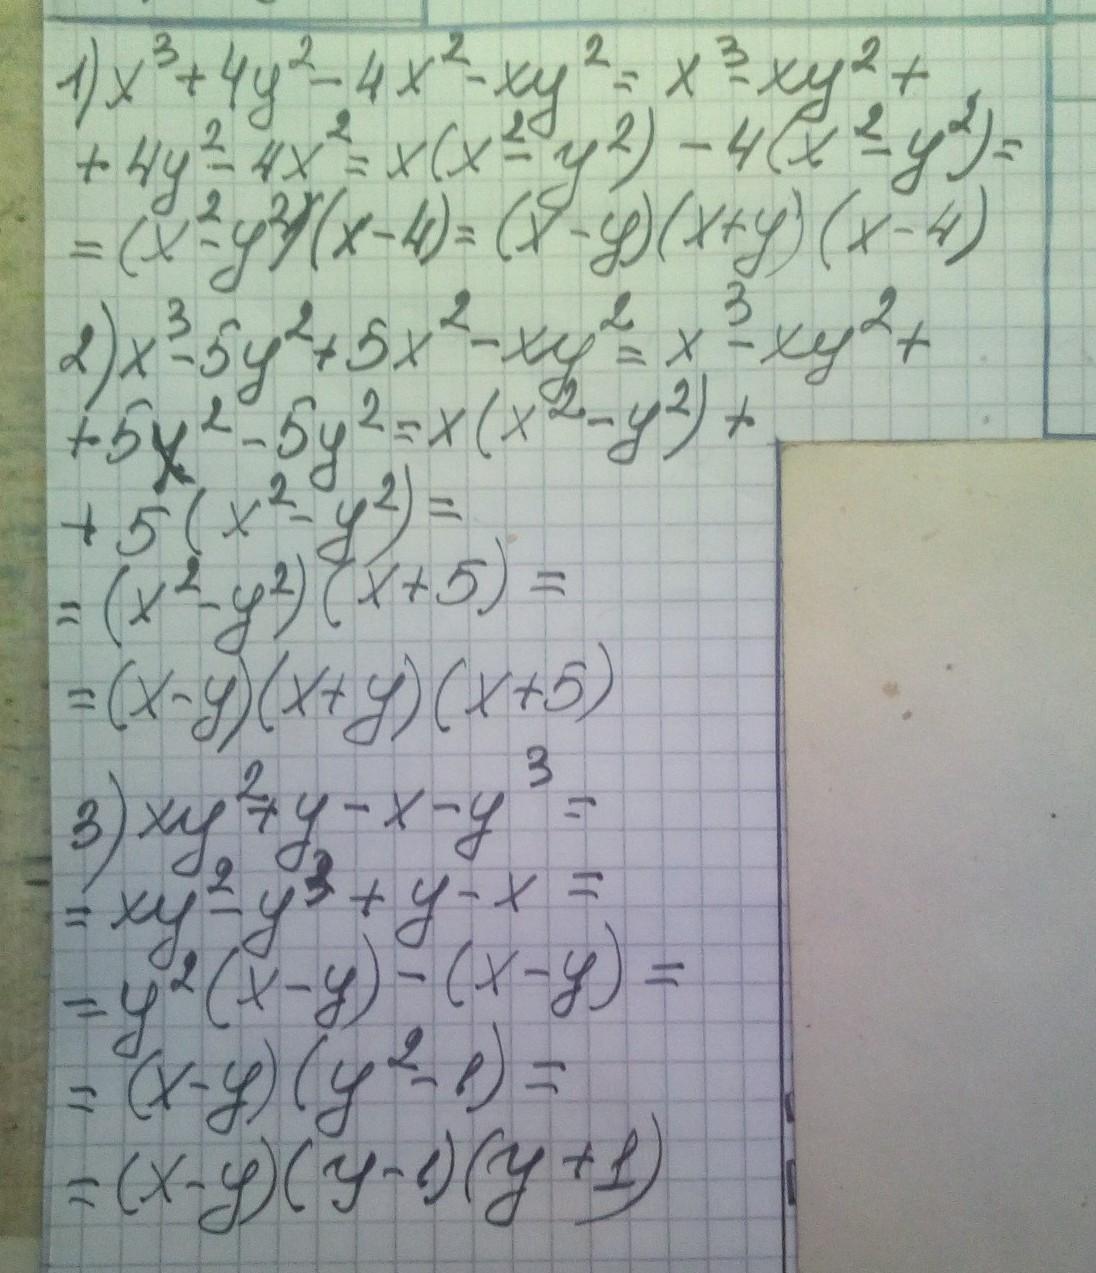 1) x³ + 4y² - 4x² - xy² = x³ - xy² +
+ 4y² - 4x² = x(x² - y²) - 4(x² - y²) =
= (x² - y²)(x - 4) = (x - y)(x + y)(x - 4)
2) x³ - 5y² + 5x² - xy² = x³ - xy² +
+ 5x² - 5y² = x(x² - y²) +
+ 5(x² - y²) =
= (x² - y²)(x + 5) =
= (x - y)(x + y)(x + 5)
3) xy² + y - x - y³ =
= xy² - y³ + y - x =
= y²(x - y) - (x - y) =
= (x - y)(y² - 1) =
= (x - y)(y - 1)(y + 1)